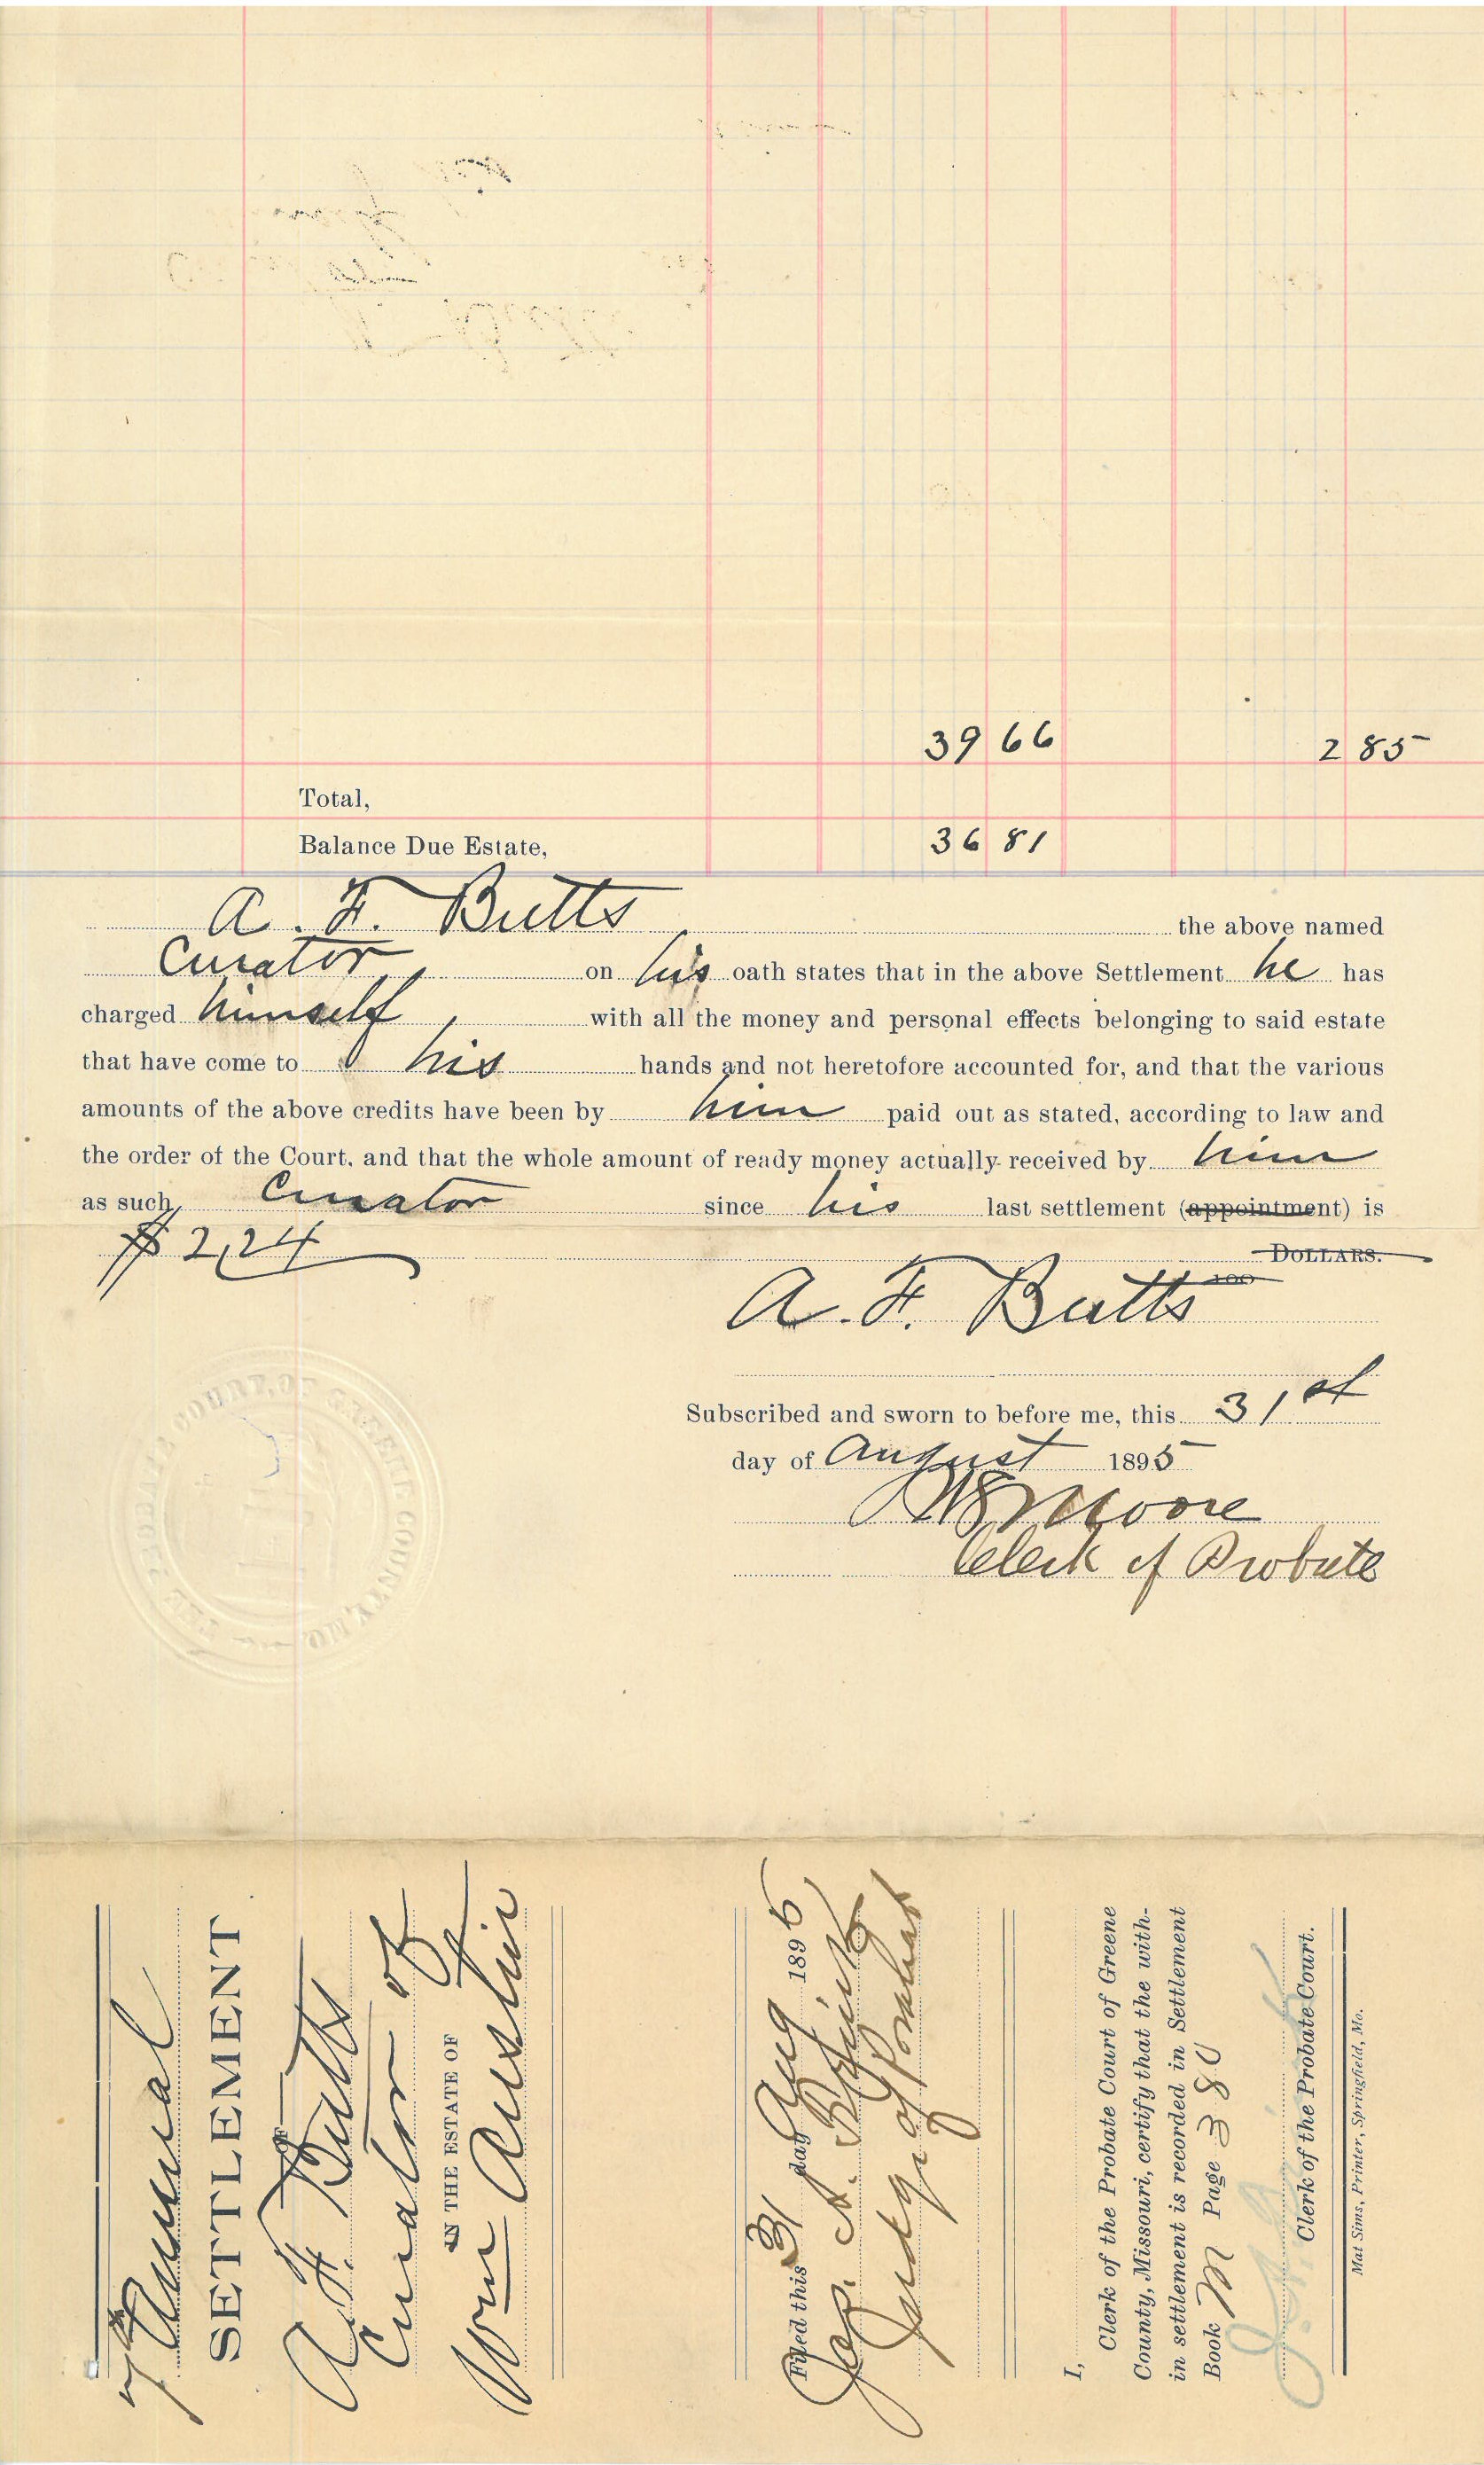 39 66 2 85
Total,
Balance Due Estate, 36 81
A. F. Butts the above named
Curator on his oath states that in the above Settlement he has
charged himself with all the money and personal effects belonging to said estate
that have come to his hands and not heretofore accounted for, and that the various
amounts of the above credits have been by him paid out as stated, according to law and
the order of the Court, and that the whole amount of ready money actually received by him
as such Curator since his last settlement (appointment) is
$2,24 DOLLARS.
100
A. F. Butts
Subscribed and sworn to before me, this 31st
day of August 1895
Moore
Clerk of Probate
THE PROBATE COURT, OF GREENE COUNTY, MO.
7th Annual
SETTLEMENT
OF
A. F. Butts
Curator of
IN THE ESTATE OF
Wm Austin
Filed this 31 day Aug 1895
Jas. A.
Judge of Probate
I,
Clerk of the Probate Court of Greene
County, Missouri, certify that the with-
in settlement is recorded in Settlement
Book M Page 380
Clerk of the Probate Court.
Mat Sims, Printer, Springfield, Mo.